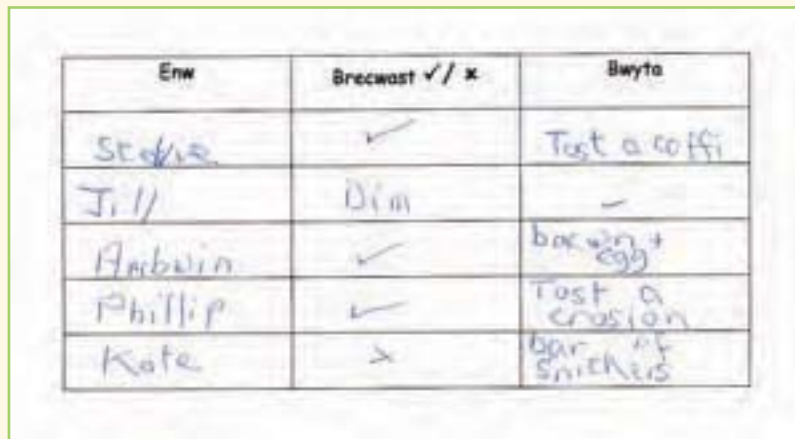 Enw Brecwast ✓/ × Bwyta
✓ Tost a coffi
Jill Dim -
✓ bacwn + egg
Phillip ✓ Tost a crosion
Kate × bar of snickers